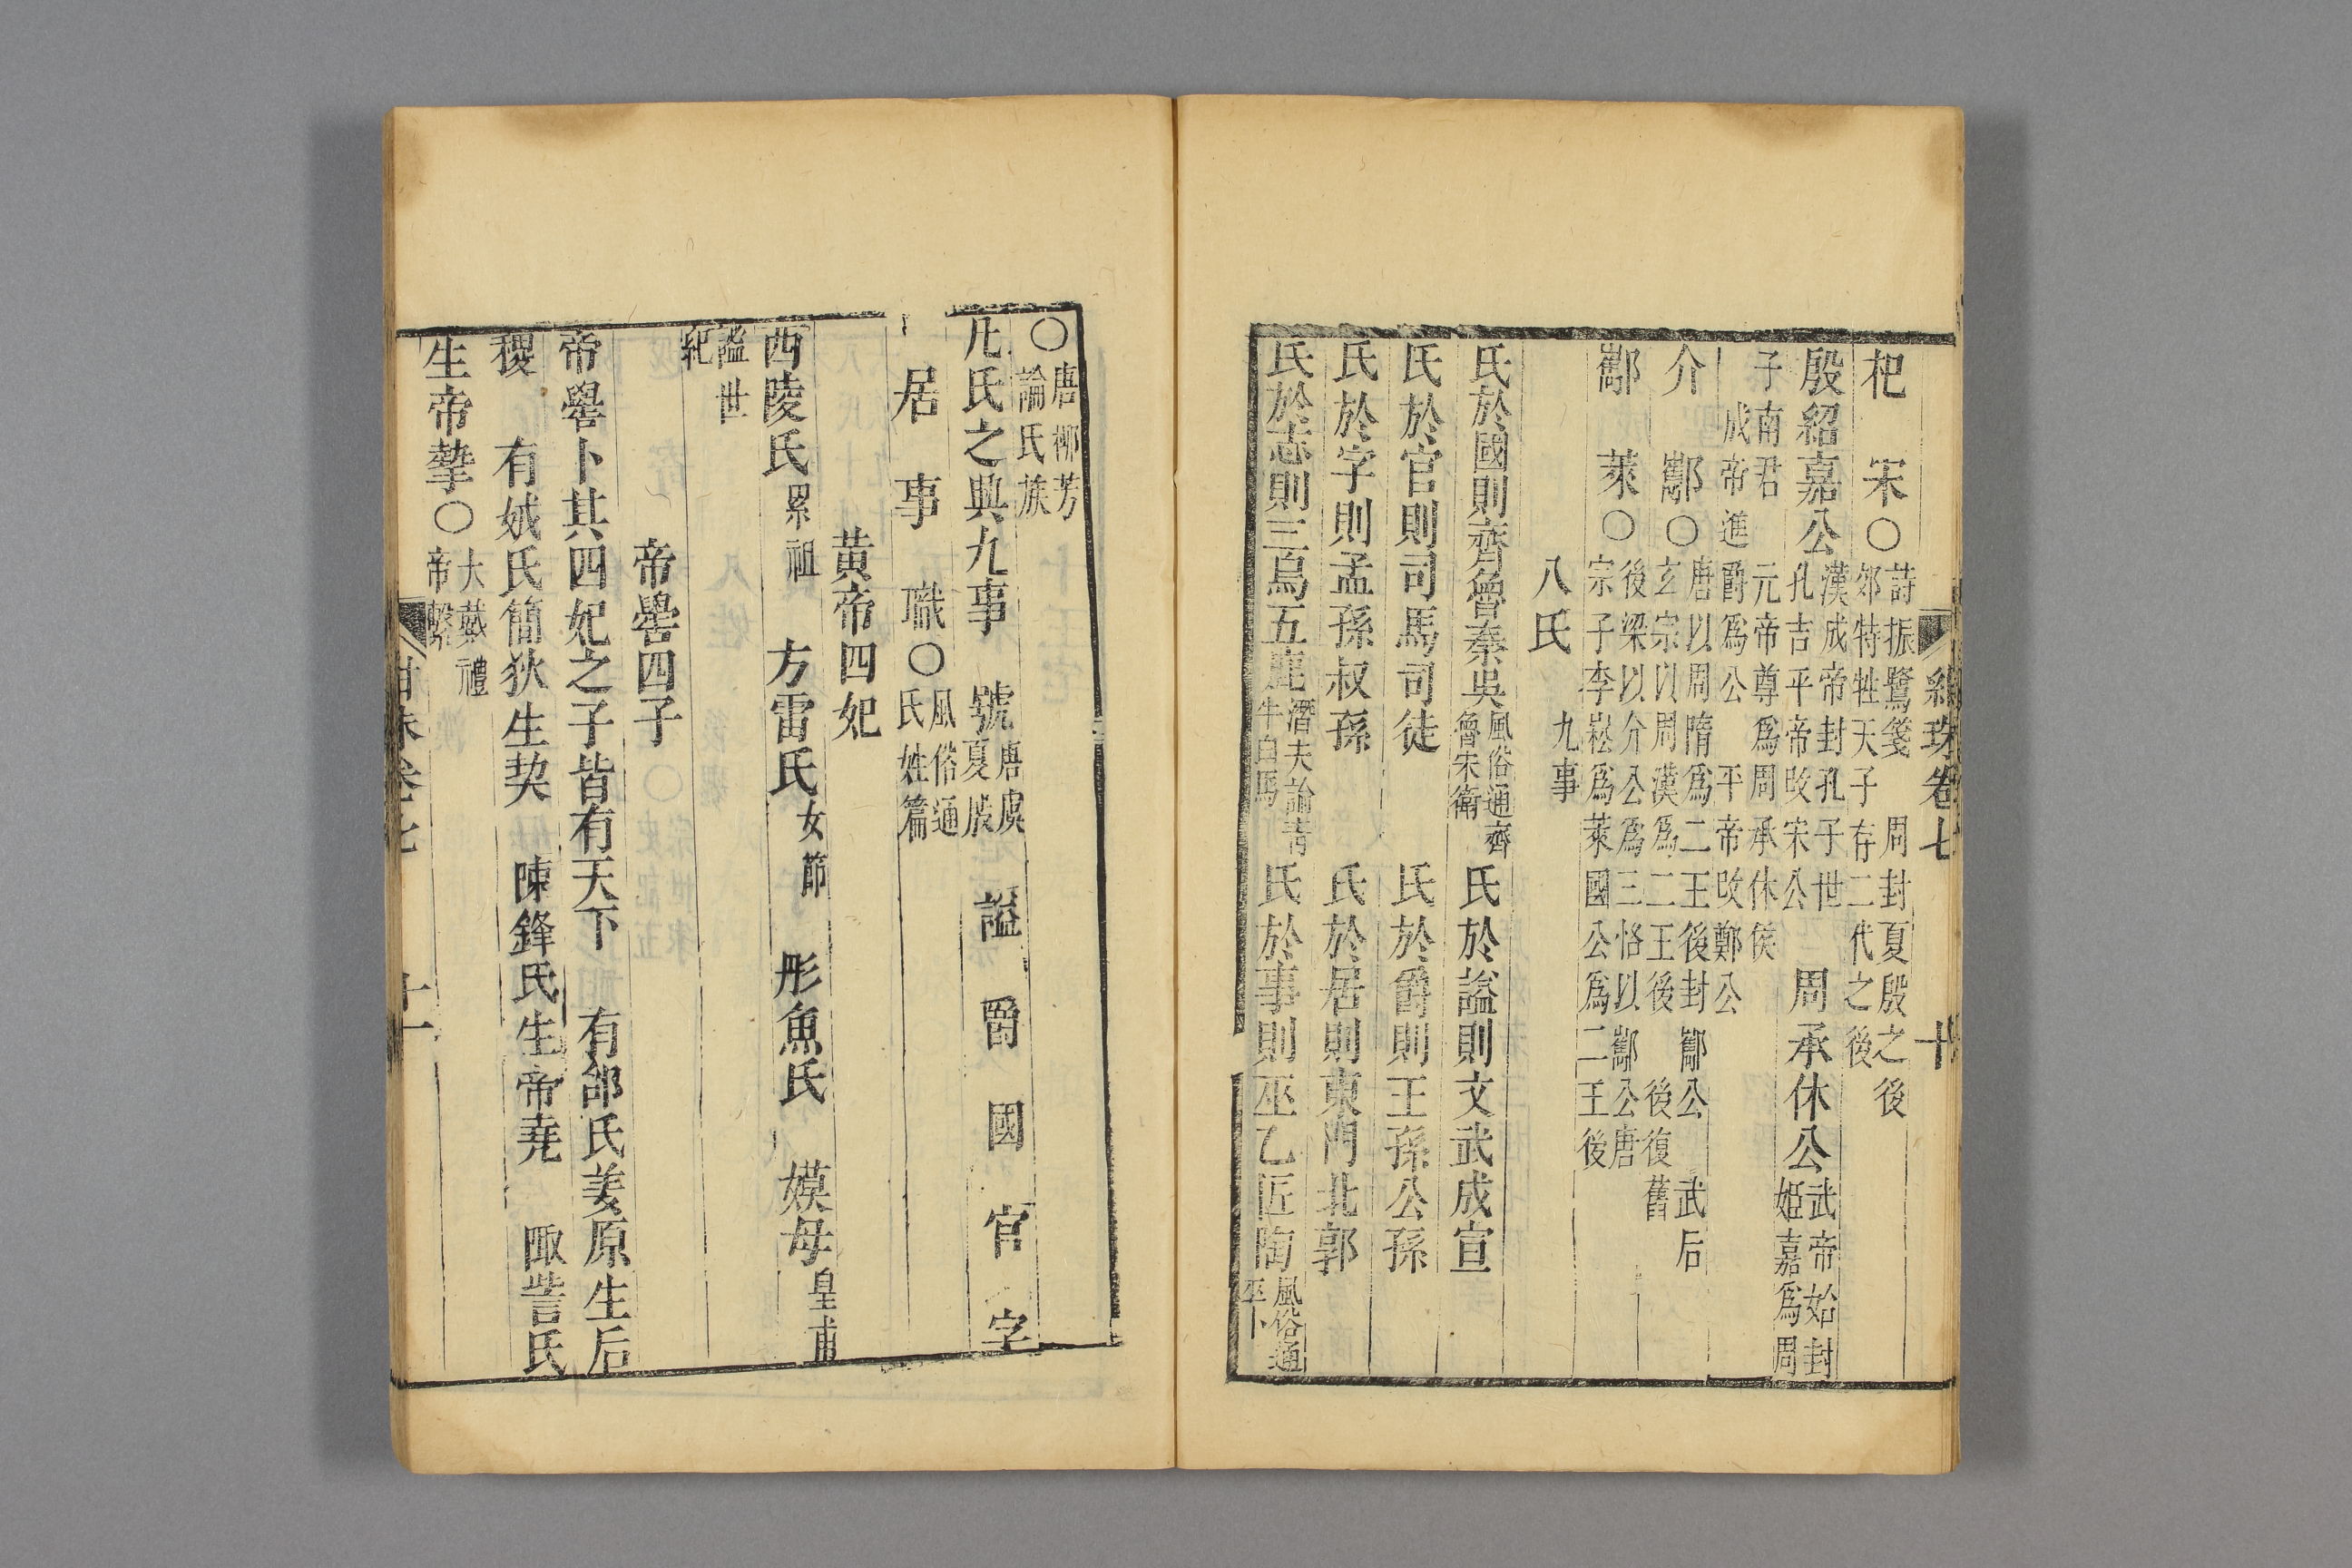 紺珠卷七 十
杞 宋〇詩振鷺箋 周封夏殷之後郊特牲天子存二代之後
殷紹嘉公漢成帝封孔子世孔吉平帝改宋公 周承休公武帝始封姬嘉為周
子南君 元帝尊為周承休侯成帝進爵為公 平帝改鄭公
介 酅〇唐以周隋為二王後封酅公 武后玄宗以周漢為二王後 後復舊
酅 萊〇後梁以介公為三恪以酅公唐宗子李崧為萊國公為二王後
八氏 九事
氏於國則齊魯秦吳風俗通齊魯宋衛 氏於謚則文武成宣
氏於官則司馬司徒 氏於爵則王孫公孫
氏於字則孟孫叔孫 氏於居則東門北郭
氏於志則三烏五鹿潛夫論青牛白馬 氏於事則巫乙匠陶風俗通巫卜
〇唐柳芳論氏族
凡氏之興九事 號唐虞夏殷 謚 爵 國 官 字
居 事 職〇風俗通氏姓篇
黃帝四妃
西陵氏累祖 方雷氏女節 彤魚氏 嫫母皇甫
謐世紀
帝嚳四子
帝嚳卜其四妃之子皆有天下 有邰氏姜原生后
稷 有娀氏簡狄生契 陳鋒氏生帝堯 陬訾氏
生帝摯〇大戴禮帝繫
卷七 十一